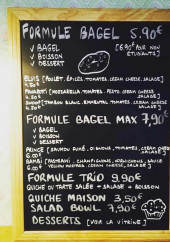 FORMULE BAGEL 5.90€
✓ BAGEL
✓ BOISSON
✓ DESSERT
(6.90€ PUR NON ÉTUDIANTS)
ELVIS (POULET, ÉPICES, TOMATES, CREAM CHEESE, SALADE)
4.50€
(MOZZARELLA, TOMATES, PESTO, CREAM CHEESE, SALADE)
4.50€
(JAMBON BLANC, EMMENTAL, TOMATES, CREAM CHEESE, SALADE)
FORMULE BAGEL MAX 7,90€
✓ BAGEL
✓ BOISSON
✓ DESSERT
PRINCE (SAUMON FUMÉ, OIGNONS, TOMATES, CREAM CHEESE, SALADE)
6.00€
(PASTRAMI, CHAMPIGNONS, CORNICHONS, SAUCE
CREAM CHEESE, SALADE)
6.00€
FORMULE TRIO 9.90€
QUICHE OU TARTE SALÉE + SALADE + BOISSON
QUICHE MAISON 3,50€
SALAD BOWL 7,90€
DESSERTS (VOIR LA VITRINE)